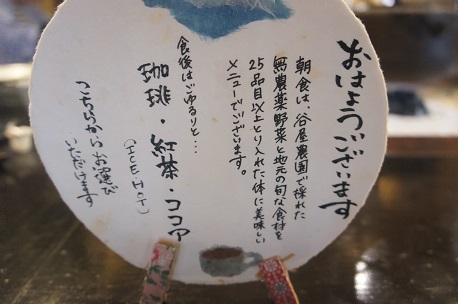 おはようございます
朝食は、谷屋農園で採れた
無農薬野菜と地元の旬な食材を
25品目以上とり入れた体に美味しい
メニューでございます。
食後はごゆるりと…
珈琲・紅茶・ココア
(ICE・HOT)
こちらからお選び
いただけます